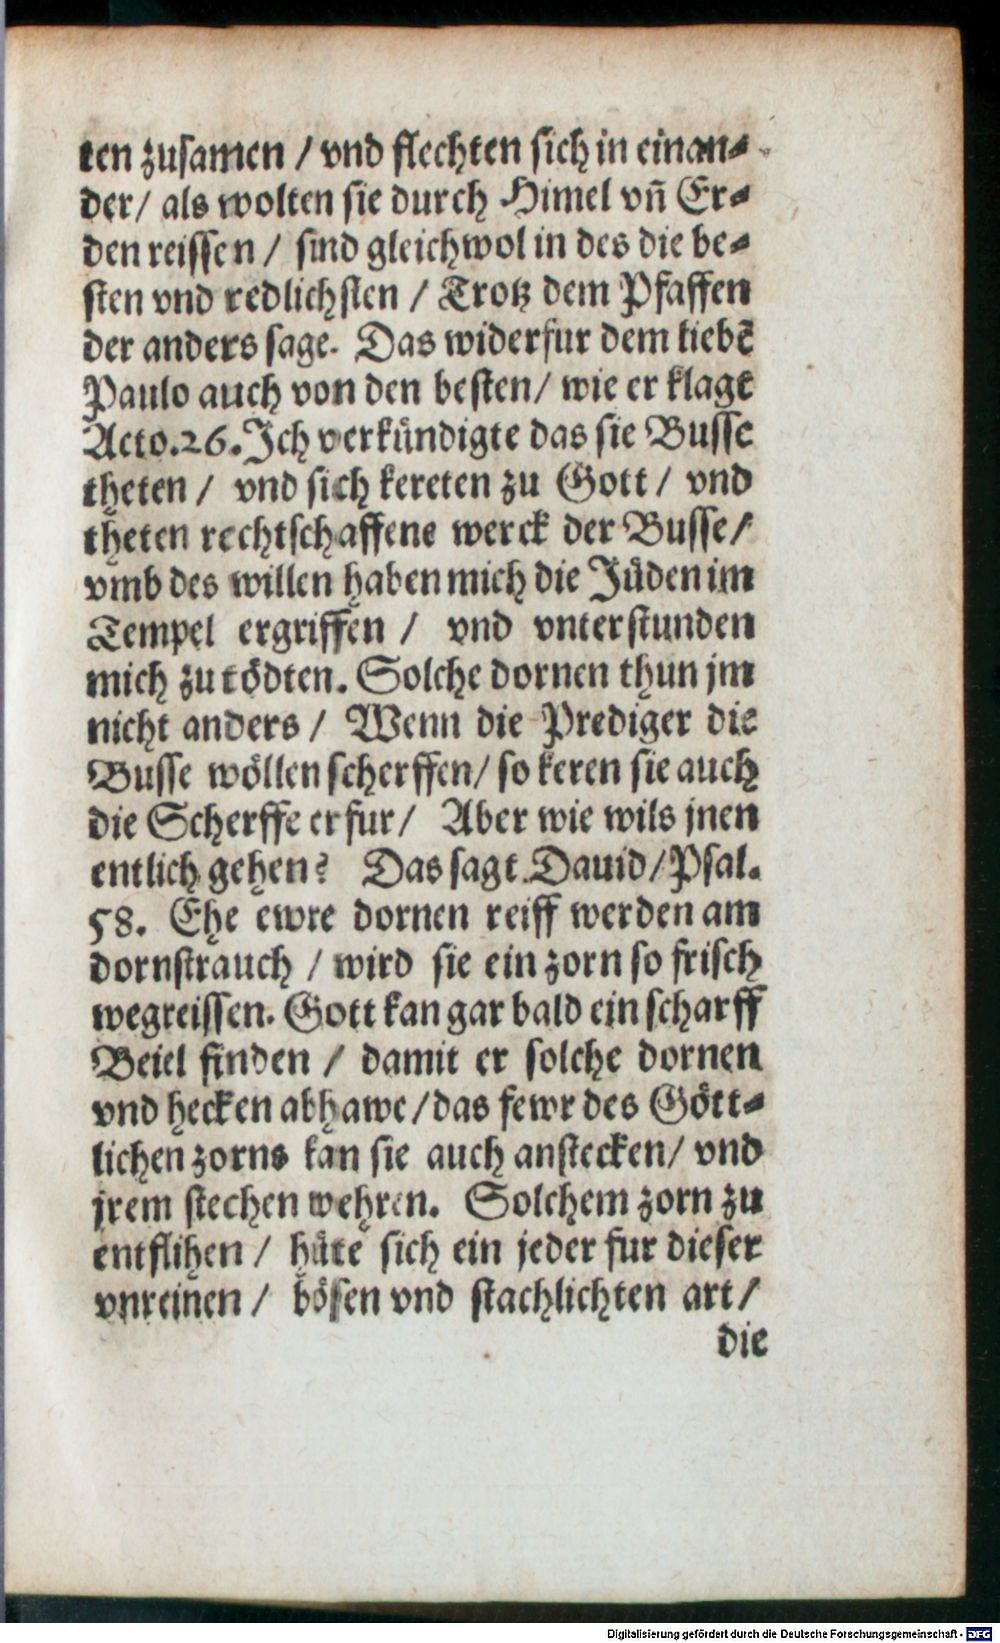 ten zusamen / vnd flechten sich in einan⸗
der / als wolten sie durch Himel vñ Er⸗
den reissen / sind gleichwol in des die be⸗
sten vnd redlichsten / Trotz dem Pfaffen
der anders sage. Das widerfur dem liebē
Paulo auch von den besten / wie er klagt
Acto. 26. Ich verkündigte das sie Busse
theten / vnd sich kereten zu Gott / vnd
theten rechtschaffene werck der Busse /
vmb des willen haben mich die Jüden im
Tempel ergriffen / vnd vnterstunden
mich zu tödten. Solche dornen thun jm
nicht anders / Wenn die Prediger die
Busse wöllen scherffen / so keren sie auch
die Scherffe erfur / Aber wie wils jnen
entlich gehen? Das sagt Dauid / Psal.
58. Ehe ewre dornen reiff werden am
dornstrauch / wird sie ein zorn so frisch
wegreissen. Gott kan gar bald ein scharff
Beiel finden / damit er solche dornen
vnd hecken abhawe / das fewr des Gött⸗
lichen zorns kan sie auch anstecken / vnd
jrem stechen wehren. Solchem zorn zu
entflihen / hüte sich ein jeder fur dieser
vnreinen / bösen vnd stachlichten art /
die
Digitalisierung gefördert durch die Deutsche Forschungsgemeinschaft - DFG